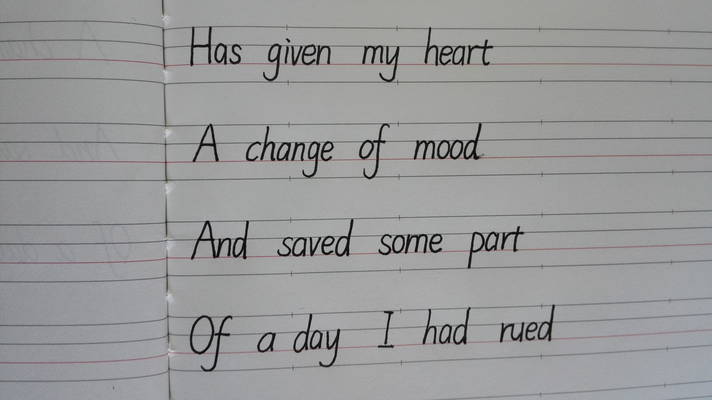 Has given my heart
A change of mood
And saved some part
Of a day I had rued